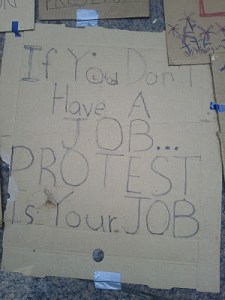 If You Don't
Have A
JOB...
PROTEST
is Your JOB